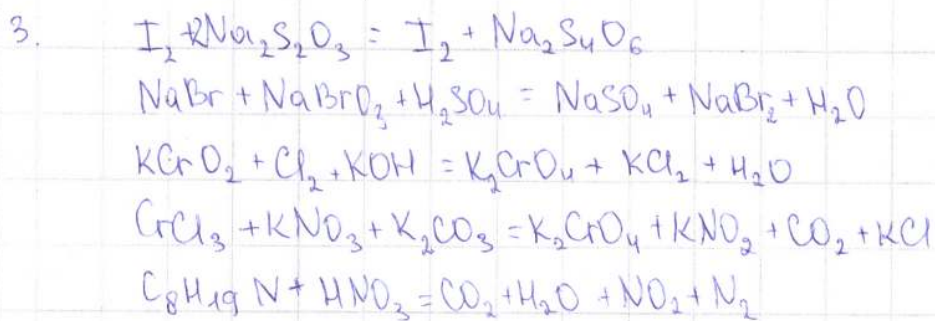 3. I₂ + 2Na₂S₂O₃ = I₂ + Na₂S₄O₆
NaBr + NaBrO₃ + H₂SO₄ = NaSO₄ + NaBr₂ + H₂O
KCrO₂ + Cl₂ + KOH = K₂CrO₄ + KCl₂ + H₂O
CrCl₃ + KNO₃ + K₂CO₃ = K₂CrO₄ + KNO₂ + CO₂ + KCl
C₈H₁₉N + HNO₃ = CO₂ + H₂O + NO₂ + N₂